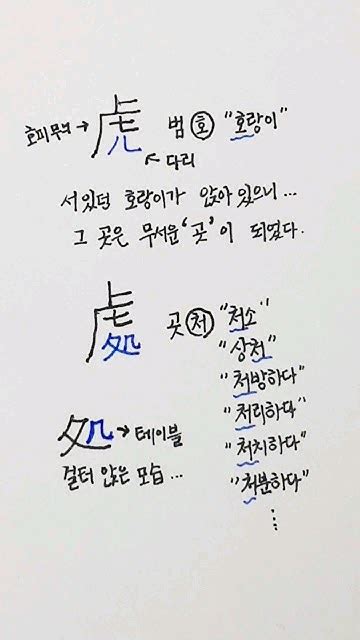 호피무늬 → 虎 범 호 "호랑이"
↖ 다리
서있던 호랑이가 앉아 있으니...
그 곳은 무서운 '곳'이 되었다.
處 곳 처 "처소"
"상처"
"처방하다"
"처리하다"
"처치하다"
"처분하다"
⋮
処 → 테이블
걸터 앉은 모습...